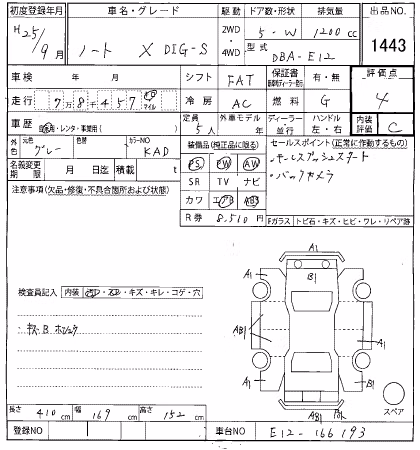 初度登録年月 車名・グレード 駆動 ドア数・形状 排気量 出品NO.
H25/9月 ノート X DIG-S 2WD・4WD 5・W 1200cc 1443
型式 DBA-E12
車検 年 月 シフト FAT 保証書 有・無 評価点
走行 7万8千457 km マイル 冷房 AC 燃料 G 4
車歴 自家用・レンタ・事業用( ) 定員 5人 外車モデル 年 ディーラー・並行 ハンドル 左・右 内装評価 C
外色 元色 グレー 色替 カラーNO KAD
名義変更期限 月 日迄 積載 t
装備品(純正品に限る)
PS PW AW
SR TV ナビ
カワ エアB ABS
R券 8,510円
セールスポイント(正常に作動するもの)
・キーレスプッシュスタート
・バックカメラ
Fガラス トビ石・キズ・ヒビ・ワレ・リペア跡
注意事項(欠品・修復・不具合箇所および状態)
検査員記入 内装 汚れ・スレ・キズ・キレ・コゲ・穴
A1
A1 B1 A1
AB1 A1
A1 B1
A1
AB1
スペア
長さ 410cm 幅 169cm 高さ 152cm
登録NO 車台NO E12-166193